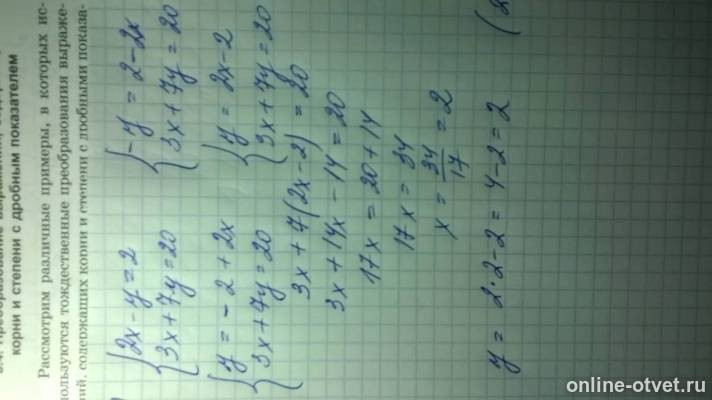 корни и степени с дробным показателем
Рассмотрим различные примеры, в которых ис-
пользуются тождественные преобразования выраже-
ний, содержащих корни и степени с дробными показа-
{2x - y = 2 {-y = 2 - 2x
{3x + 7y = 20 {3x + 7y = 20
{y = -2 + 2x {y = 2x - 2
{3x + 7y = 20 {3x + 7y = 20
3x + 7(2x - 2) = 20
3x + 14x - 14 = 20
17x = 20 + 14
17x = 34
x = 34/17 = 2
y = 2·2 - 2 = 4 - 2 = 2
online-otvet.ru